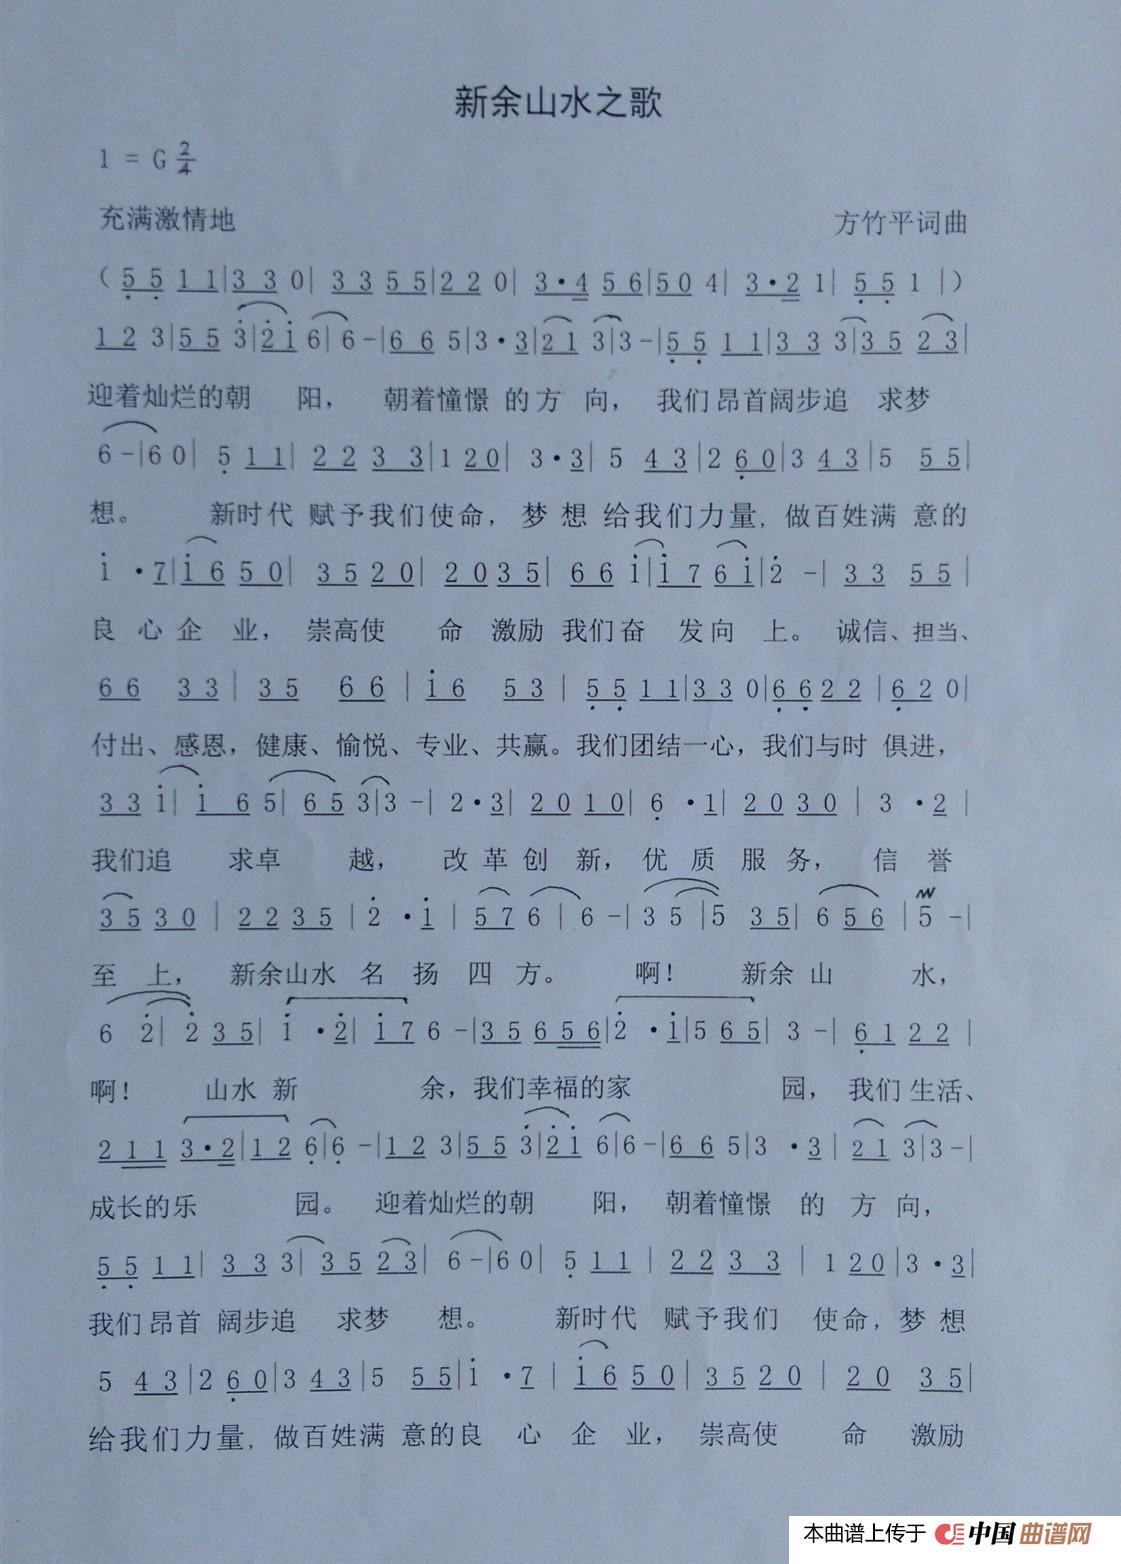 新余山水之歌
1 = G 2/4
充满激情地 方竹平词曲
( 5 5 1 1 | 3 3 0 | 3 3 5 5 | 2 2 0 | 3 · 4 5 6 | 5 0 4 | 3 · 2 1 | 5 5 1 | )
1 2 3 | 5 5 3 | 2 1 6 | 6 - | 6 6 5 | 3 · 3 | 2 1 3 | 3 - | 5 5 1 1 | 3 3 3 | 3 5 2 3 |
迎着灿烂的朝 阳， 朝着憧憬 的方 向， 我们昂首阔步追 求梦
6 - | 6 0 | 5 1 1 | 2 2 3 3 | 1 2 0 | 3 · 3 | 5 4 3 | 2 6 0 | 3 4 3 | 5 5 5 |
想。 新时代 赋予我们使命, 梦想 给我们力量, 做百姓满 意的
1 · 7 | 1 6 5 0 | 3 5 2 0 | 2 0 3 5 | 6 6 1 | 1 7 6 1 | 2 - | 3 3 5 5 |
良 心 企 业， 崇高使 命 激励 我们奋 发向 上。 诚信、担当、
6 6 3 3 | 3 5 6 6 | 1 6 5 3 | 5 5 1 1 | 3 3 0 | 6 6 2 2 | 6 2 0 |
付出、感恩，健康、愉悦、专业、共赢。我们团结一心，我们与时 俱进，
3 3 1 | 1 6 5 | 6 5 3 | 3 - | 2 · 3 | 2 0 1 0 | 6 · 1 | 2 0 3 0 | 3 · 2 |
我们追 求卓 越， 改 革 创 新， 优 质 服 务， 信 誉
3 5 3 0 | 2 2 3 5 | 2 · 1 | 5 7 6 | 6 - | 3 5 | 5 3 5 | 6 5 6 | 5 - |
至 上， 新余山水 名 扬 四 方。 啊！ 新余 山 水，
6 2 | 2 3 5 | 1 · 2 | 1 7 6 - | 3 5 6 5 6 | 2 · 1 | 5 6 5 | 3 - | 6 1 2 2 |
啊！ 山水 新 余，我们幸福的家 园， 我们 生活、
2 1 1 3 · 2 | 1 2 6 | 6 - | 1 2 3 | 5 5 3 | 2 1 6 | 6 - | 6 6 5 | 3 · 3 | 2 1 3 | 3 - |
成长的乐 园。 迎着灿烂的朝 阳， 朝着憧憬 的 方 向，
5 5 1 1 | 3 3 3 | 3 5 2 3 | 6 - | 6 0 | 5 1 1 | 2 2 3 3 | 1 2 0 | 3 · 3 |
我们昂首 阔步追 求梦 想。 新时代 赋予我们 使命, 梦 想
5 4 3 | 2 6 0 | 3 4 3 | 5 5 5 | 1 · 7 | 1 6 5 0 | 3 5 2 0 | 2 0 3 5 |
给我们力量, 做百姓满 意的良 心 企 业， 崇高使 命 激励
本曲谱上传于 中国曲谱网